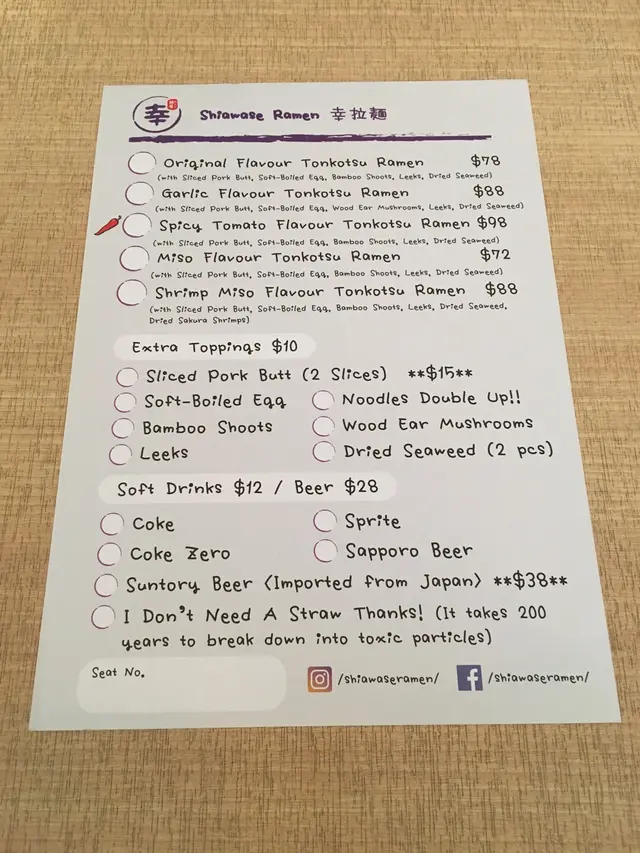 幸 Shiawase Ramen 幸拉麵
Original Flavour Tonkotsu Ramen $78
(with Sliced Pork Butt, Soft-Boiled Egg, Bamboo Shoots, Leeks, Dried Seaweed)
Garlic Flavour Tonkotsu Ramen $88
(with Sliced Pork Butt, Soft-Boiled Egg, Wood Ear Mushrooms, Leeks, Dried Seaweed)
Spicy Tomato Flavour Tonkotsu Ramen $98
(with Sliced Pork Butt, Soft-Boiled Egg, Bamboo Shoots, Leeks, Dried Seaweed)
Miso Flavour Tonkotsu Ramen $72
(with Sliced Pork Butt, Soft-Boiled Egg, Bamboo Shoots, Leeks, Dried Seaweed)
Shrimp Miso Flavour Tonkotsu Ramen $88
(with Sliced Pork Butt, Soft-Boiled Egg, Bamboo Shoots, Leeks, Dried Seaweed,
Dried Sakura Shrimps)
Extra Toppings $10
Sliced Pork Butt (2 Slices) **$15**
Soft-Boiled Egg Noodles Double Up!!
Bamboo Shoots Wood Ear Mushrooms
Leeks Dried Seaweed (2 pcs)
Soft Drinks $12 / Beer $28
Coke Sprite
Coke Zero Sapporo Beer
Suntory Beer <Imported from Japan> **$38**
I Don't Need A Straw Thanks! (It takes 200
years to break down into toxic particles)
Seat No. /shiawaseramen/ /shiawaseramen/